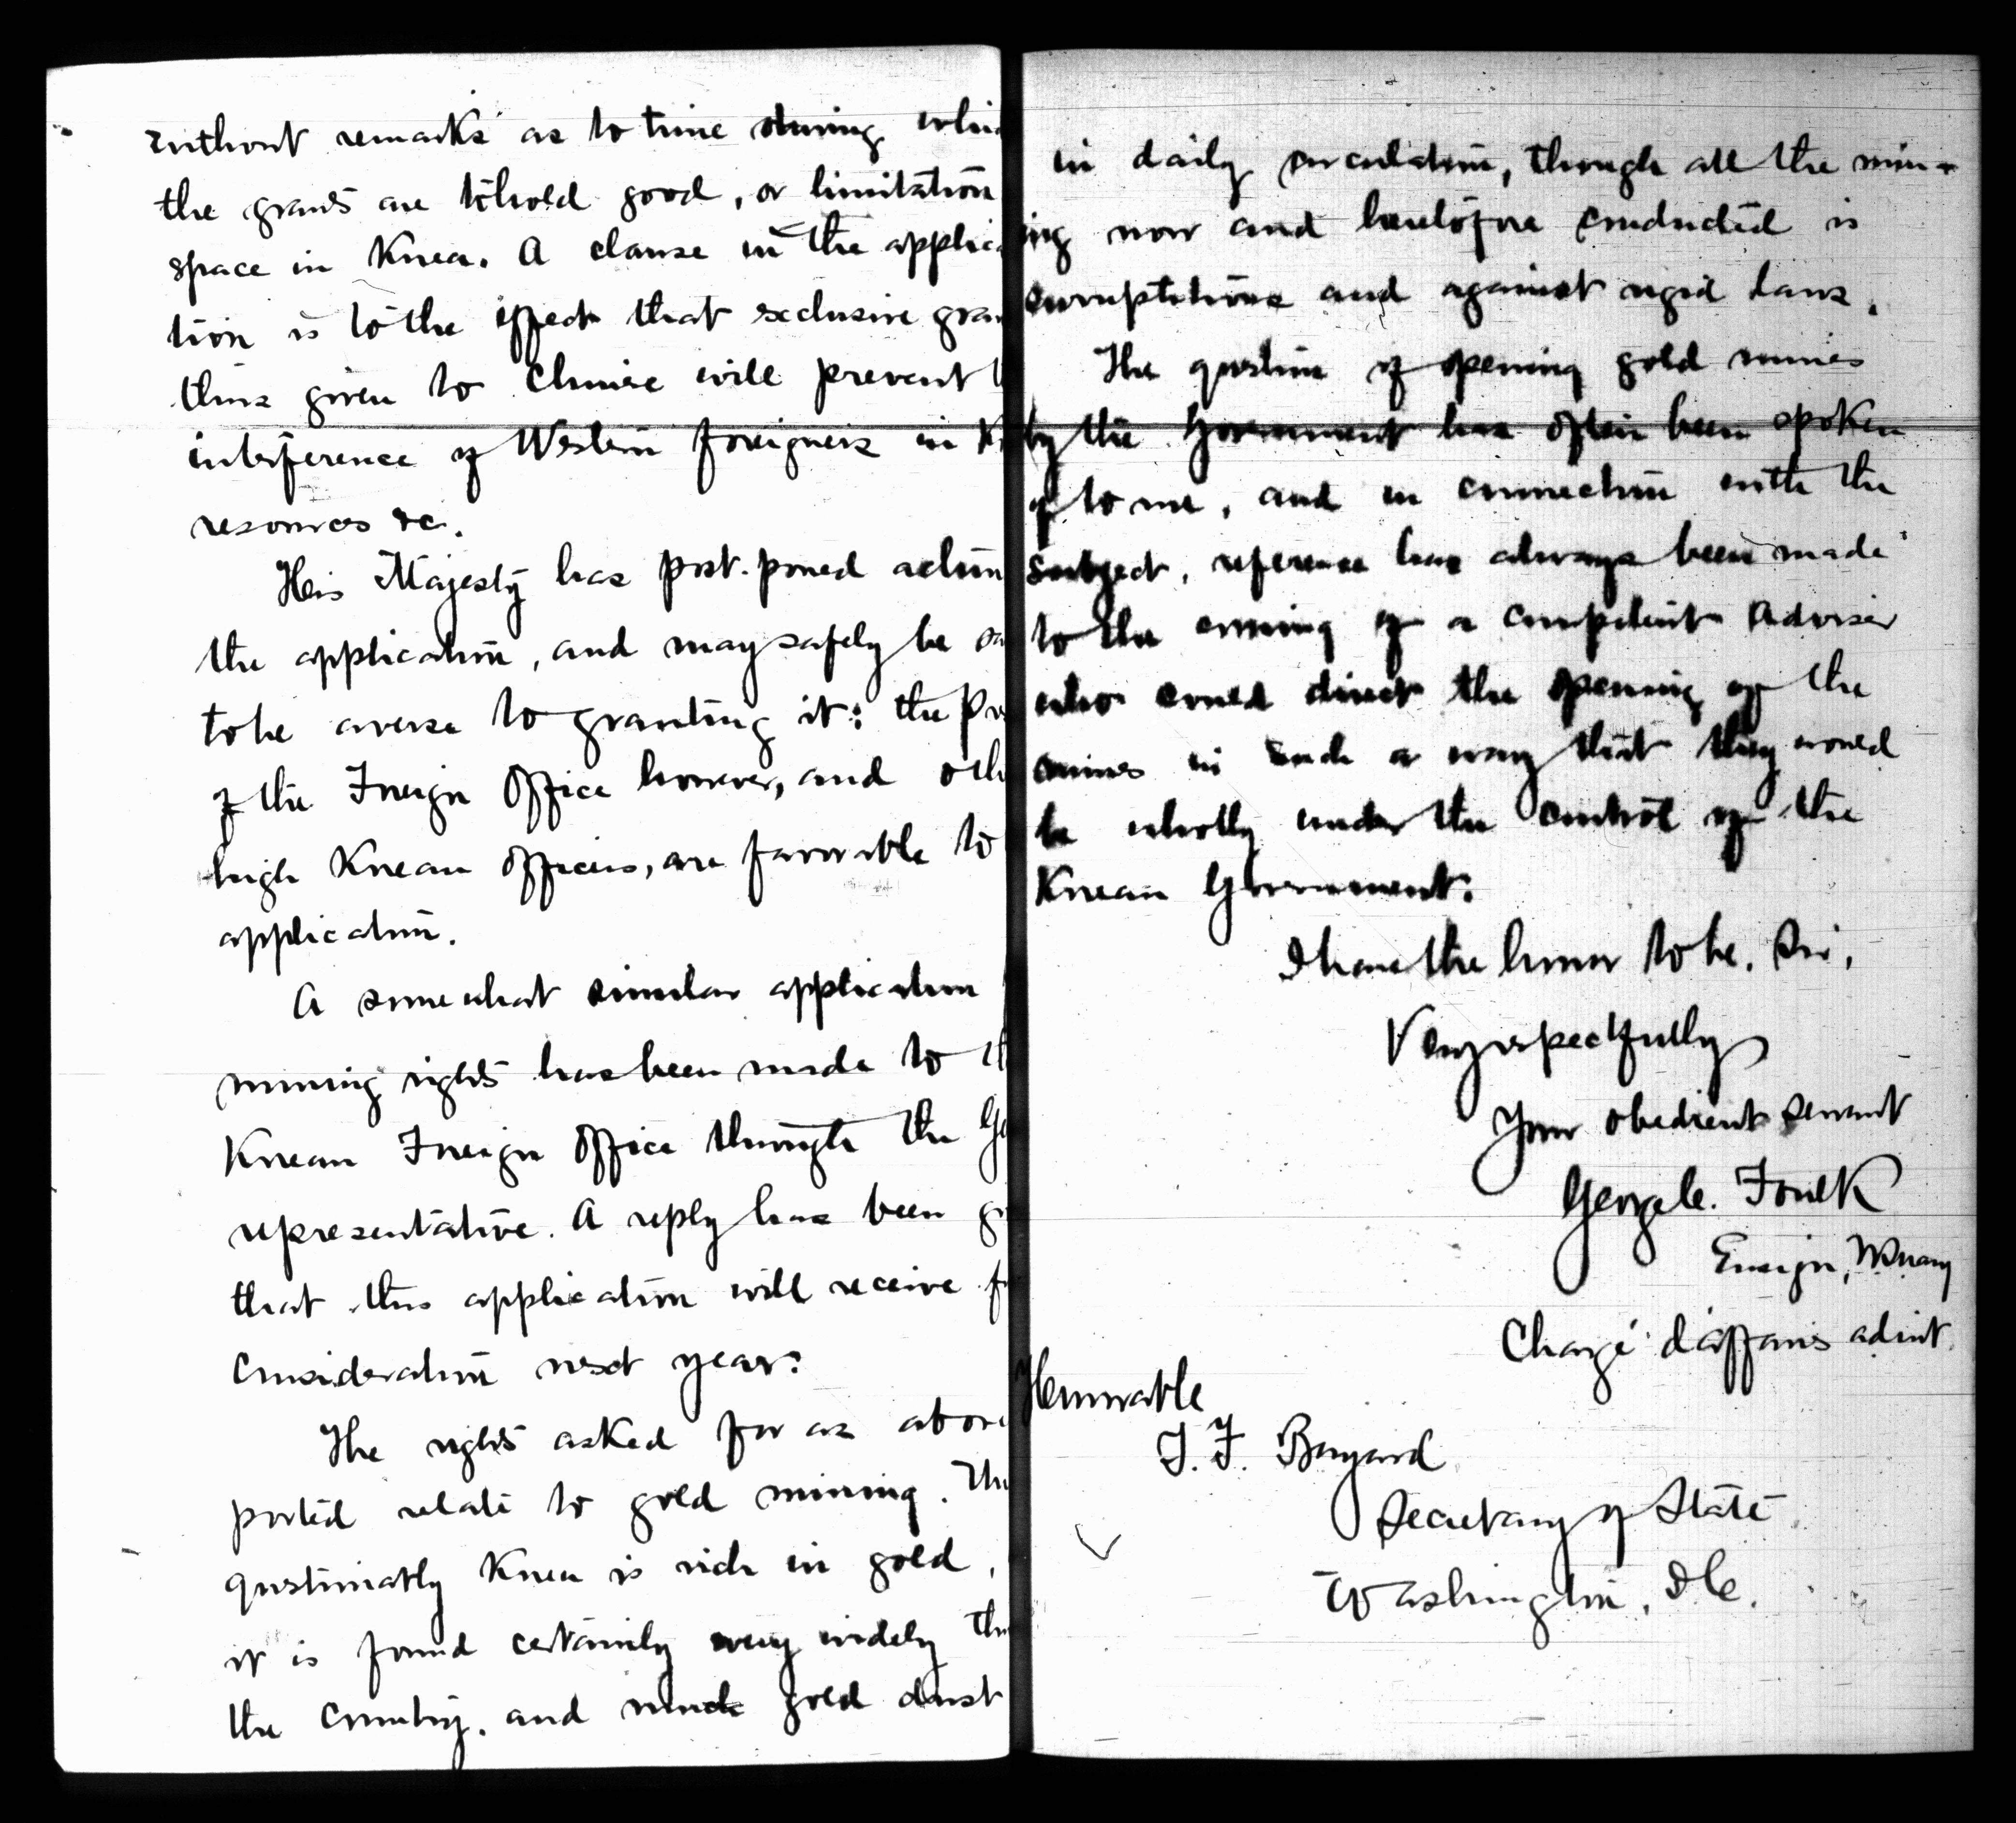 without remarks as to time during whic
the grants are to hold good, or limitation
space in Korea. A clause in the applica
tion is to the effect that exclusive gran
thus given to Chinese will prevent
interference of Western foreigners in K
resources &c.
His Majesty has post-poned action
the application, and may safely be sa
to be averse to granting it: the Pr
of the Foreign Office however, and oth
high Korean officers, are favorable to
application.
A somewhat similar application
mining rights has been made to th
Korean Foreign Office through the Ge
representative. A reply has been gi
that this application will receive
consideration next year.
The rights asked for as above
ported relate to gold mining. Un
questionably Korea is rich in gold,
it is found certainly very widely th
the country, and much gold dust
in daily circulation, though all the min-
ing now and heretofore conducted is
surreptitious and against rigid laws.
The question of opening gold mines
by the Government has often been spoken
of to me, and in connection with the
subject, reference has always been made
to the coming of a competent Adviser
who could direct the opening of the
mines in such a way that they would
be wholly under the control of the
Korean Government.
I have the honor to be, Sir,
Very respectfully
Your obedient servant
George C. Foulk
Ensign, U.S. Navy
Chargé d'affaires ad int.
Honorable
T. F. Bayard
Secretary of State
Washington, D.C.